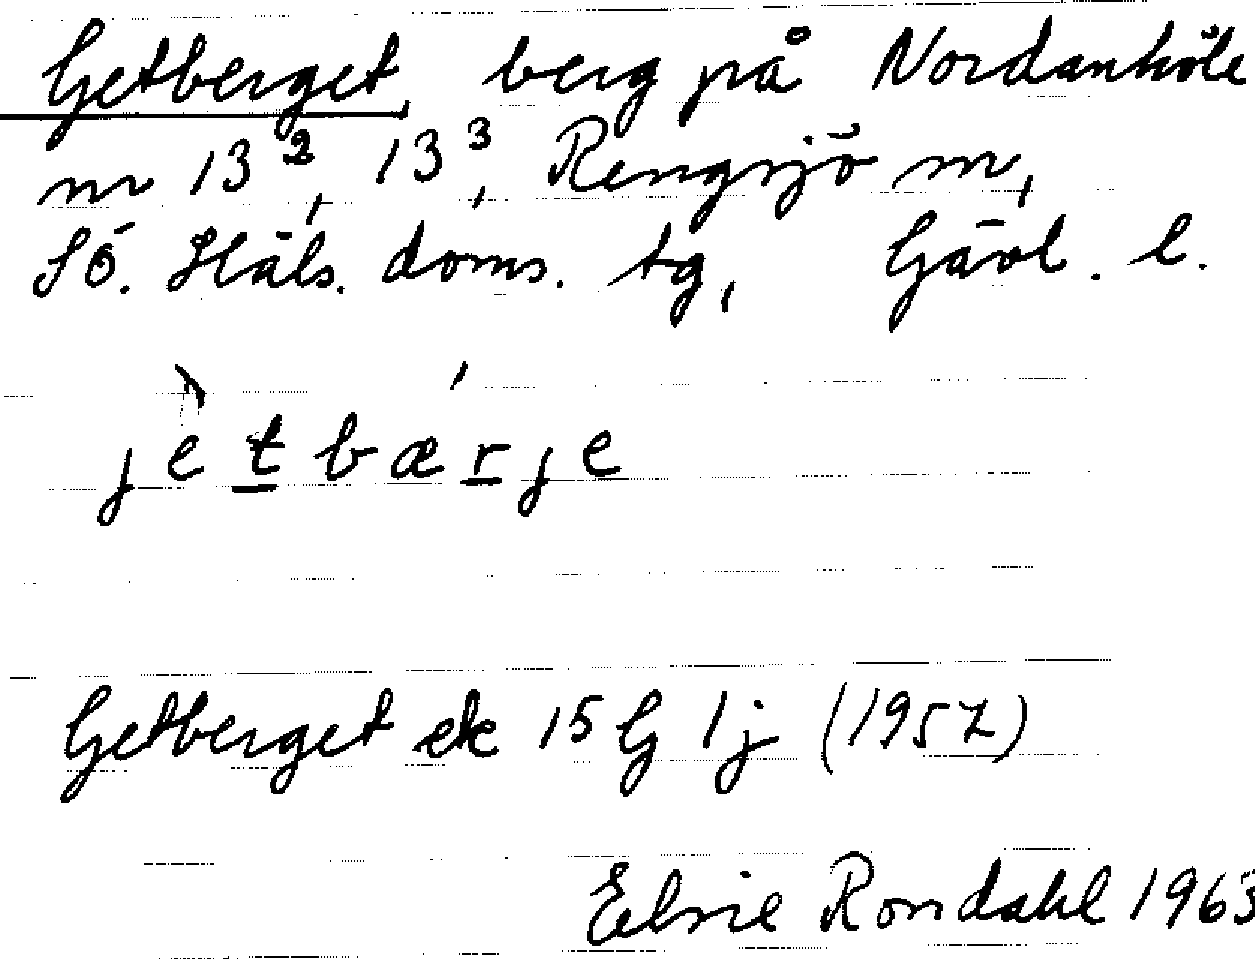 Getberget, berg på Nordanhöle
nr 13², 13³, Rengsjö sn,
SÖ. Häls. doms. tg, Gävl. l.
jètbæ´rje
Getberget ek 15 G 1j (1957)
Elsie Rondahl 1963